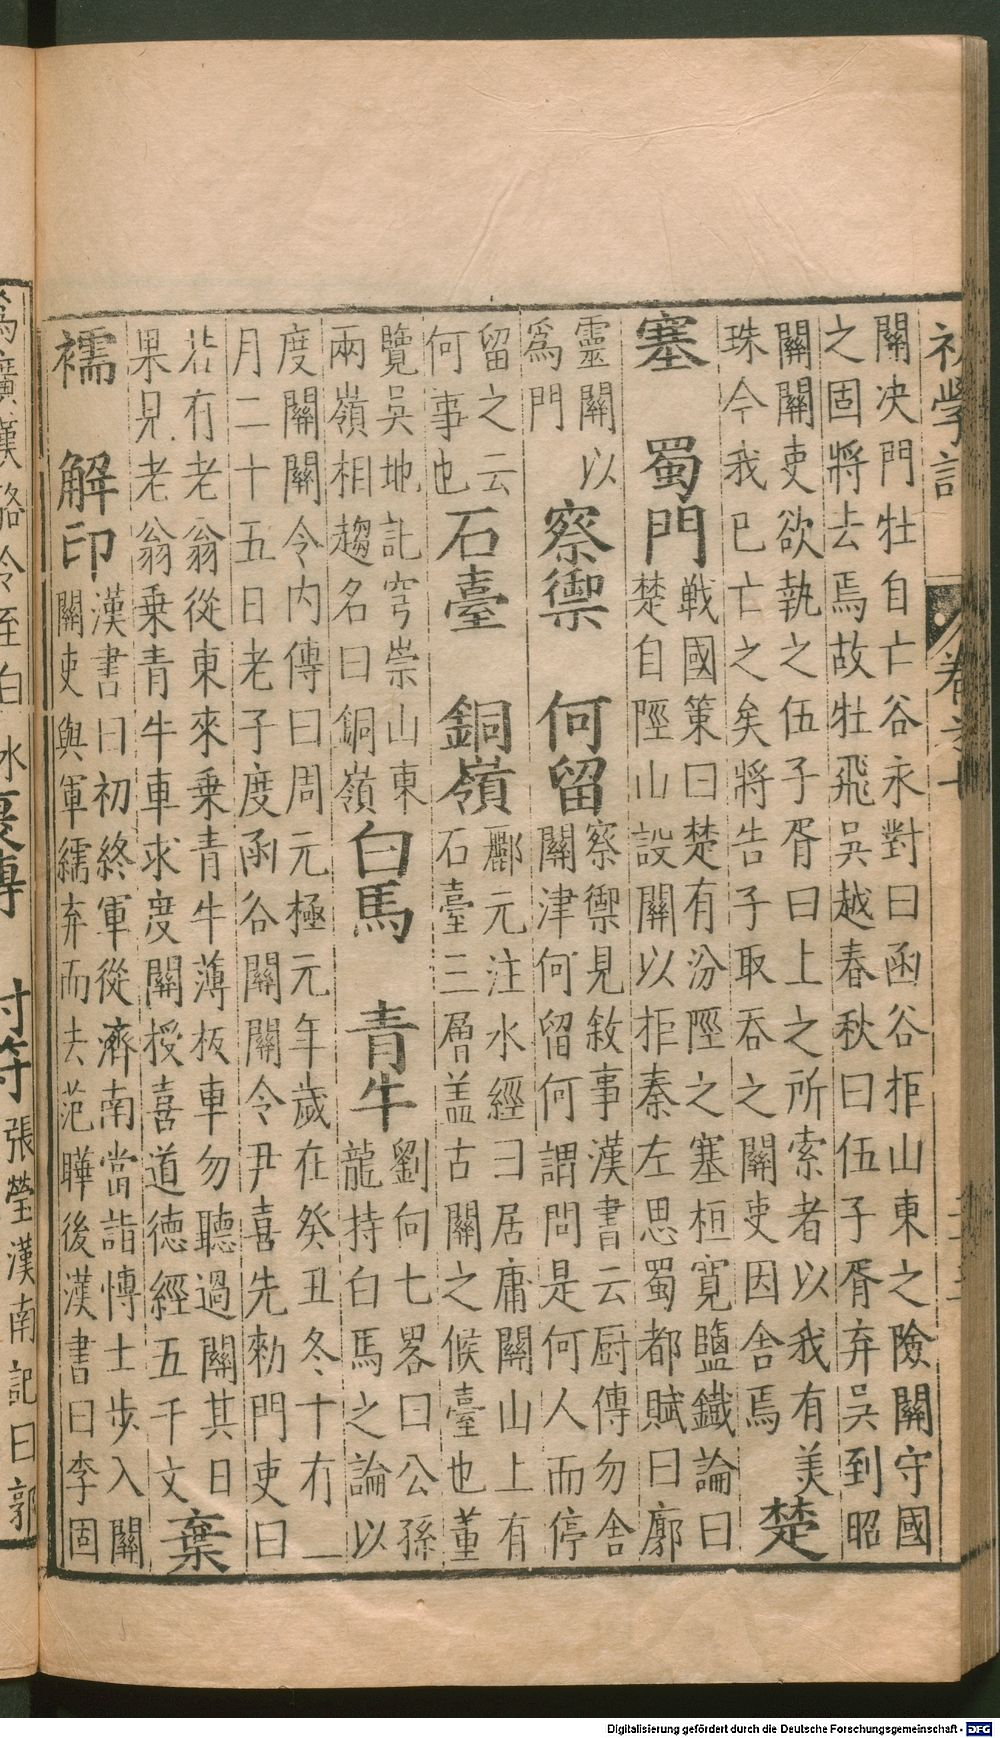 初學記
卷之七
關決門牡自亡谷永對曰函谷拒山東之險關守國
之固將去焉故牡飛吳越春秋曰伍子胥弃吳到昭
關關吏欲執之伍子胥曰上之所索者以我有美
珠今我已亡之矣將告子取吞之關吏因舍焉
楚
塞 蜀門
戰國策曰楚有汾陘之塞桓寬鹽鐵論曰
楚自陘山設關以拒秦左思蜀都賦曰廓
靈關以
爲門
察禦 何留
察禦見敘事漢書云厨傳勿舍
關津何留何謂問是何人而停
留之云
何事也
石臺 銅嶺
酈元注水經曰居庸關山上有
石臺三層盖古關之候臺也董
覽吳地記穹崇山東
兩嶺相趨名曰銅嶺
白馬 青牛
劉向七畧曰公孫
龍持白馬之論以
度關關令內傳曰周元極元年歲在癸丑冬十有一
月二十五日老子度函谷關關令尹喜先勑門吏曰
若有老翁從東來乗青牛薄板車勿聽過關其日
果見老翁乗青牛車求度關授喜道德經五千文
棄
襦 解印
漢書曰初終軍從濟南當詣博士步入關
關吏與軍繻弃而去范曄後漢書曰李固
爲廣漢雒令至白水
張瑩漢南記曰郭
Digitalisierung gefördert durch die Deutsche Forschungsgemeinschaft - DFG